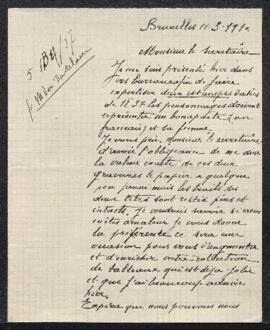 Bruxelles 11-3-1910
Monsieur le Secrétaire
Je me suis présenté hier dans
vos bureaux afin de faire
expertiser deux estampes datées
de 1837 les personnages doivent
représenter un
français et sa femme.
Je vous prie, Monsieur le secrétaire
d'avoir l'obligeance de me dire
la valeur exacte de ces deux
gravures le papier a quelque
peu jauni mais les
deux têtes sont restées et
intacts. Je voudrais savoir si vous
amateur je vous donne
la préférence ce sera une
occasion pour vous d'augmenter
et d'enrichir votre collection
de tableaux qui est déjà jolie
et que j'ai beaucoup admirée
hier.
que nous pourrons nous